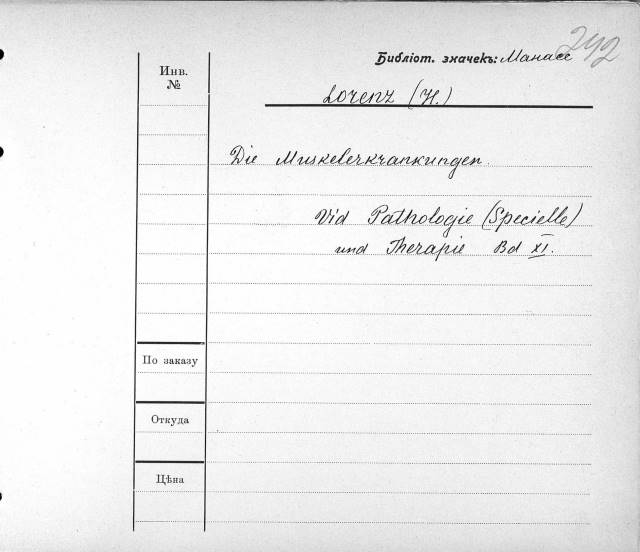 242
Библіот. значекъ: Манасс
Инв.
№
Lorenz (H.)
Die Muskelerkrankungen.
Vid Pathologie (Specielle)
und Therapie Bd XI.
По заказу
Откуда
Цѣна